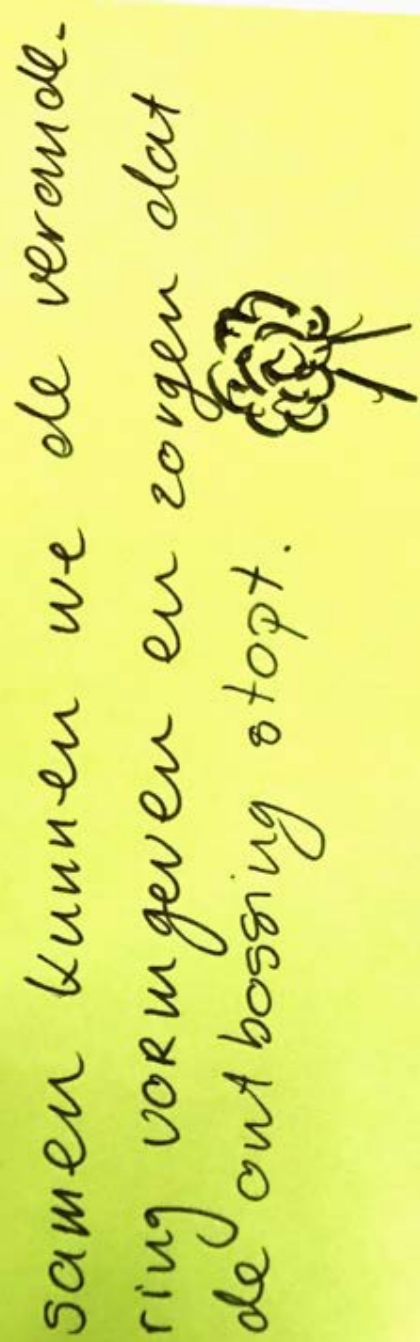 samen kunnen we de verande-
ring vormgeven en zorgen dat
de ontbossing stopt.